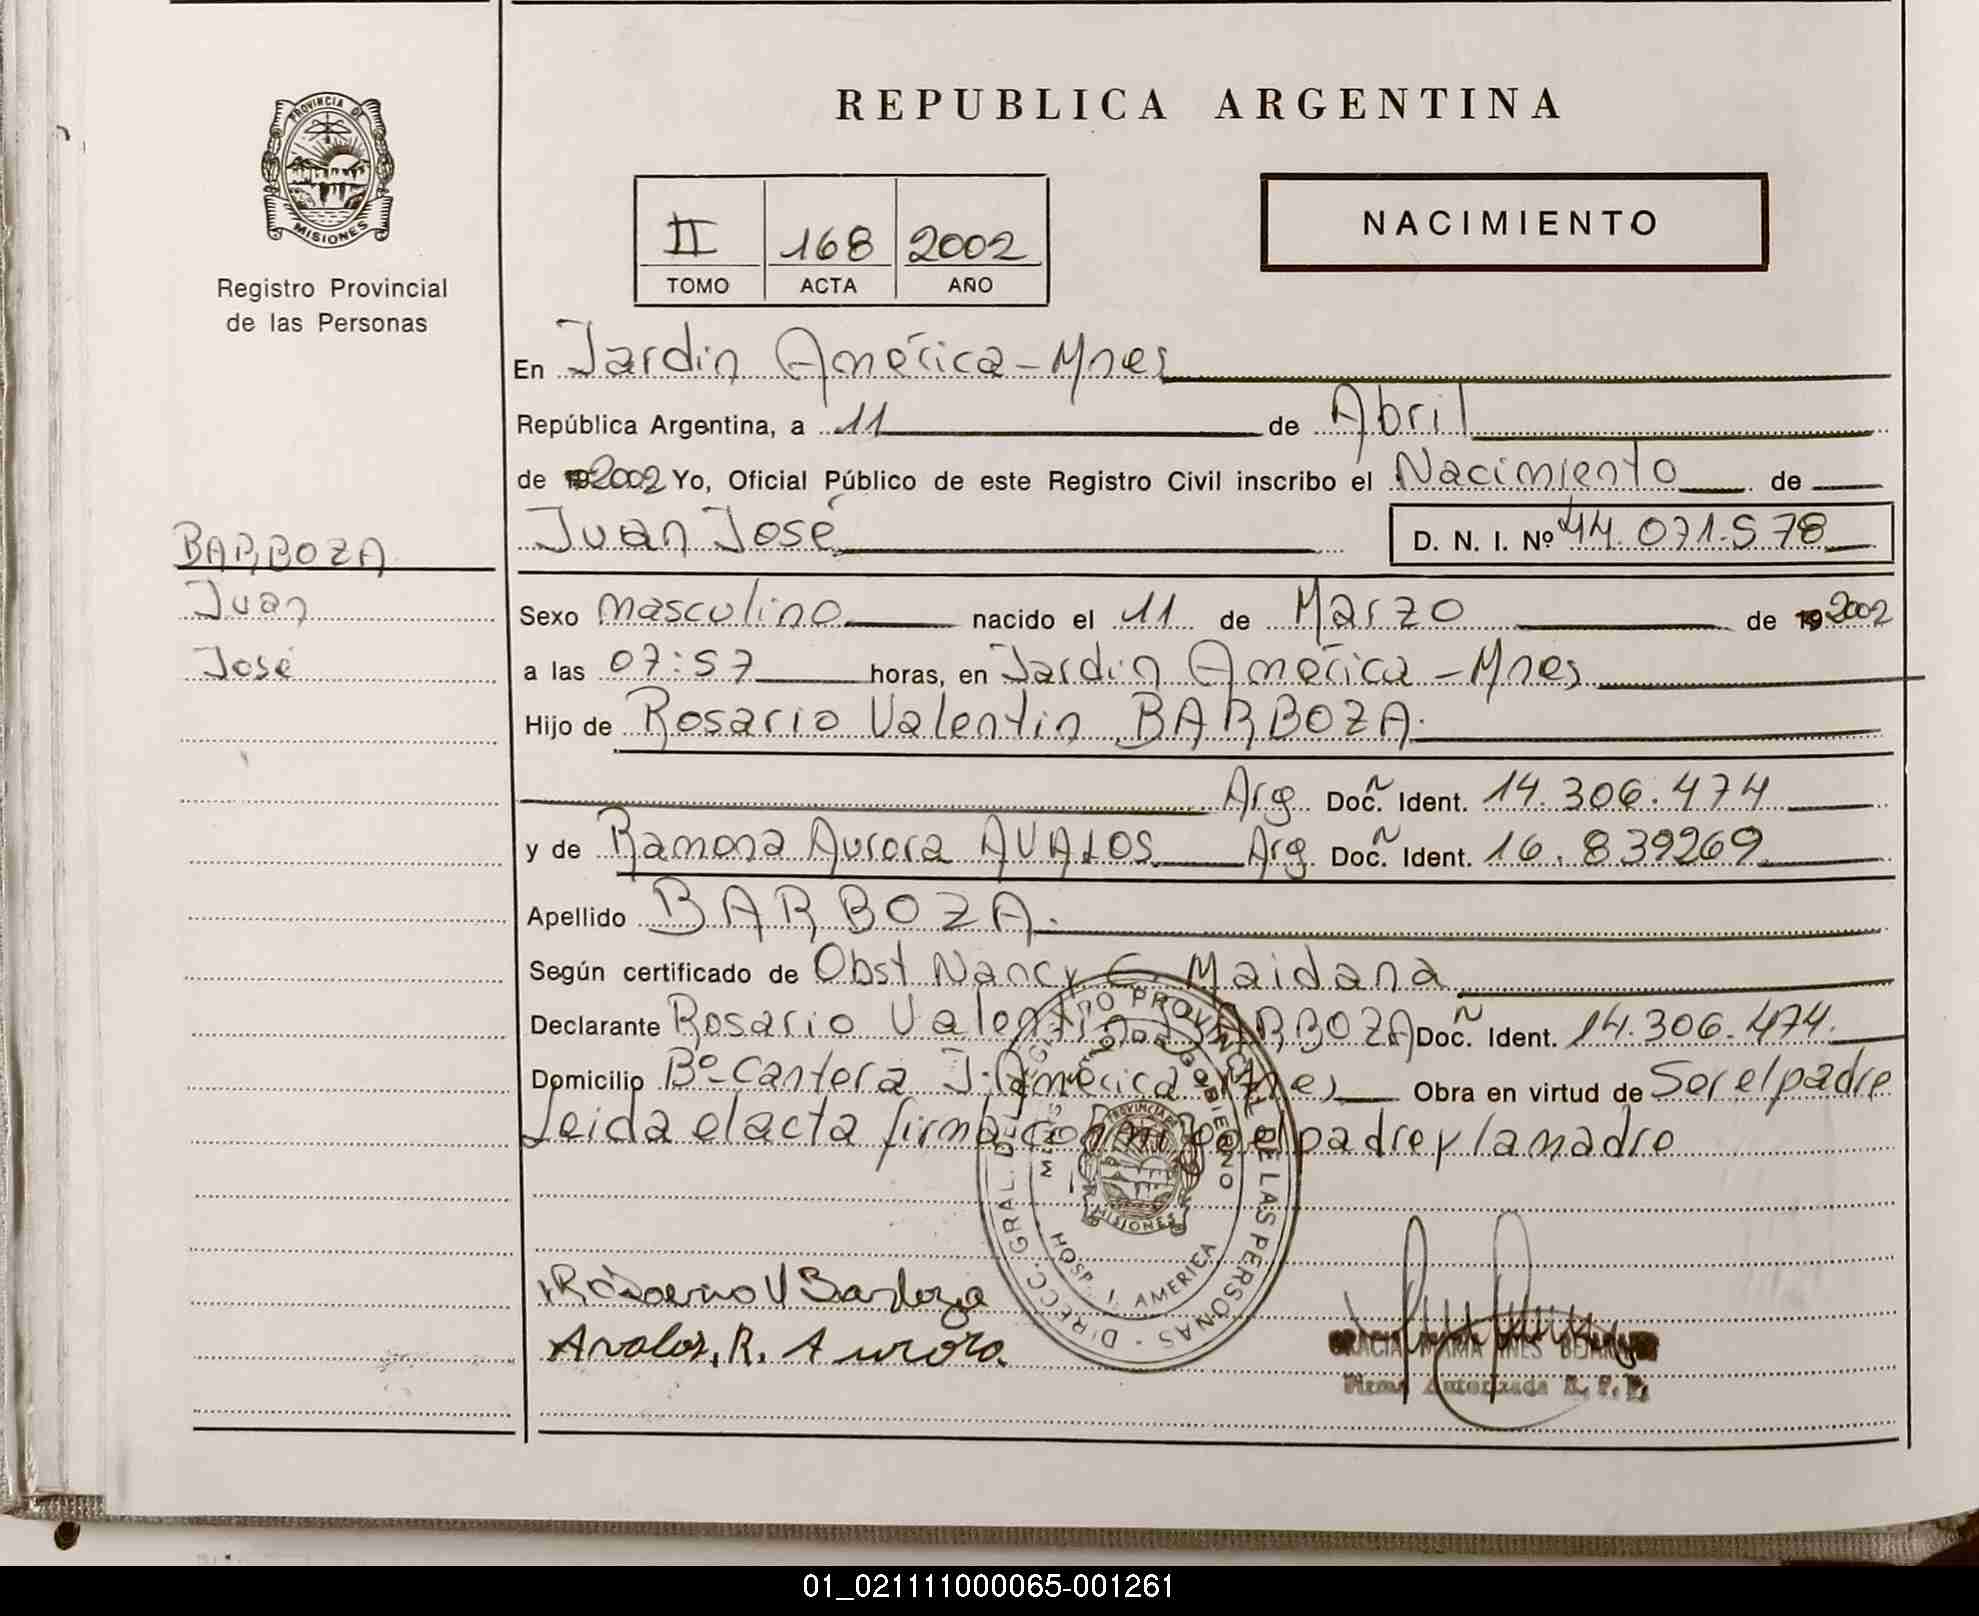 REPUBLICA ARGENTINA
PROVINCIA DE
MISIONES
Registro Provincial
de las Personas
II 168 2002
TOMO ACTA AÑO
NACIMIENTO
En Jardin América - Mnes
República Argentina, a 11 de Abril
de 19 2002 Yo, Oficial Público de este Registro Civil inscribo el Nacimiento de
Juan José D. N. I. Nº 44.071.578
BARBOZA
Juan
José
Sexo masculino nacido el 11 de Marzo de 19 2002
a las 07:57 horas, en Jardin América - Mnes
Hijo de Rosario Valentin BARBOZA.
Arg Doc. Ident. 14.306.474
y de Ramona Aurora AVALOS Arg Doc. Ident. 16.839269
Apellido BARBOZA.
Según certificado de Obst Nancy C. Maidana
Declarante Rosario Valentin BARBOZA Doc. Ident. 14.306.474.
Domicilio Bº Cantera J. América Mnes Obra en virtud de Ser el padre
Leida el acta firman conmigo el padre y la madre
DIRECC. GRAL. DEL REGISTRO PROVINCIAL DE LAS PERSONAS
GOBIERNO
PROVINCIA DE
MISIONES
HOSP. J. AMERICA
Rosario V Barboza
Avalos, R. Aurora
MARIA INES
Firma Autorizada R. P. P.
01_021111000065-001261